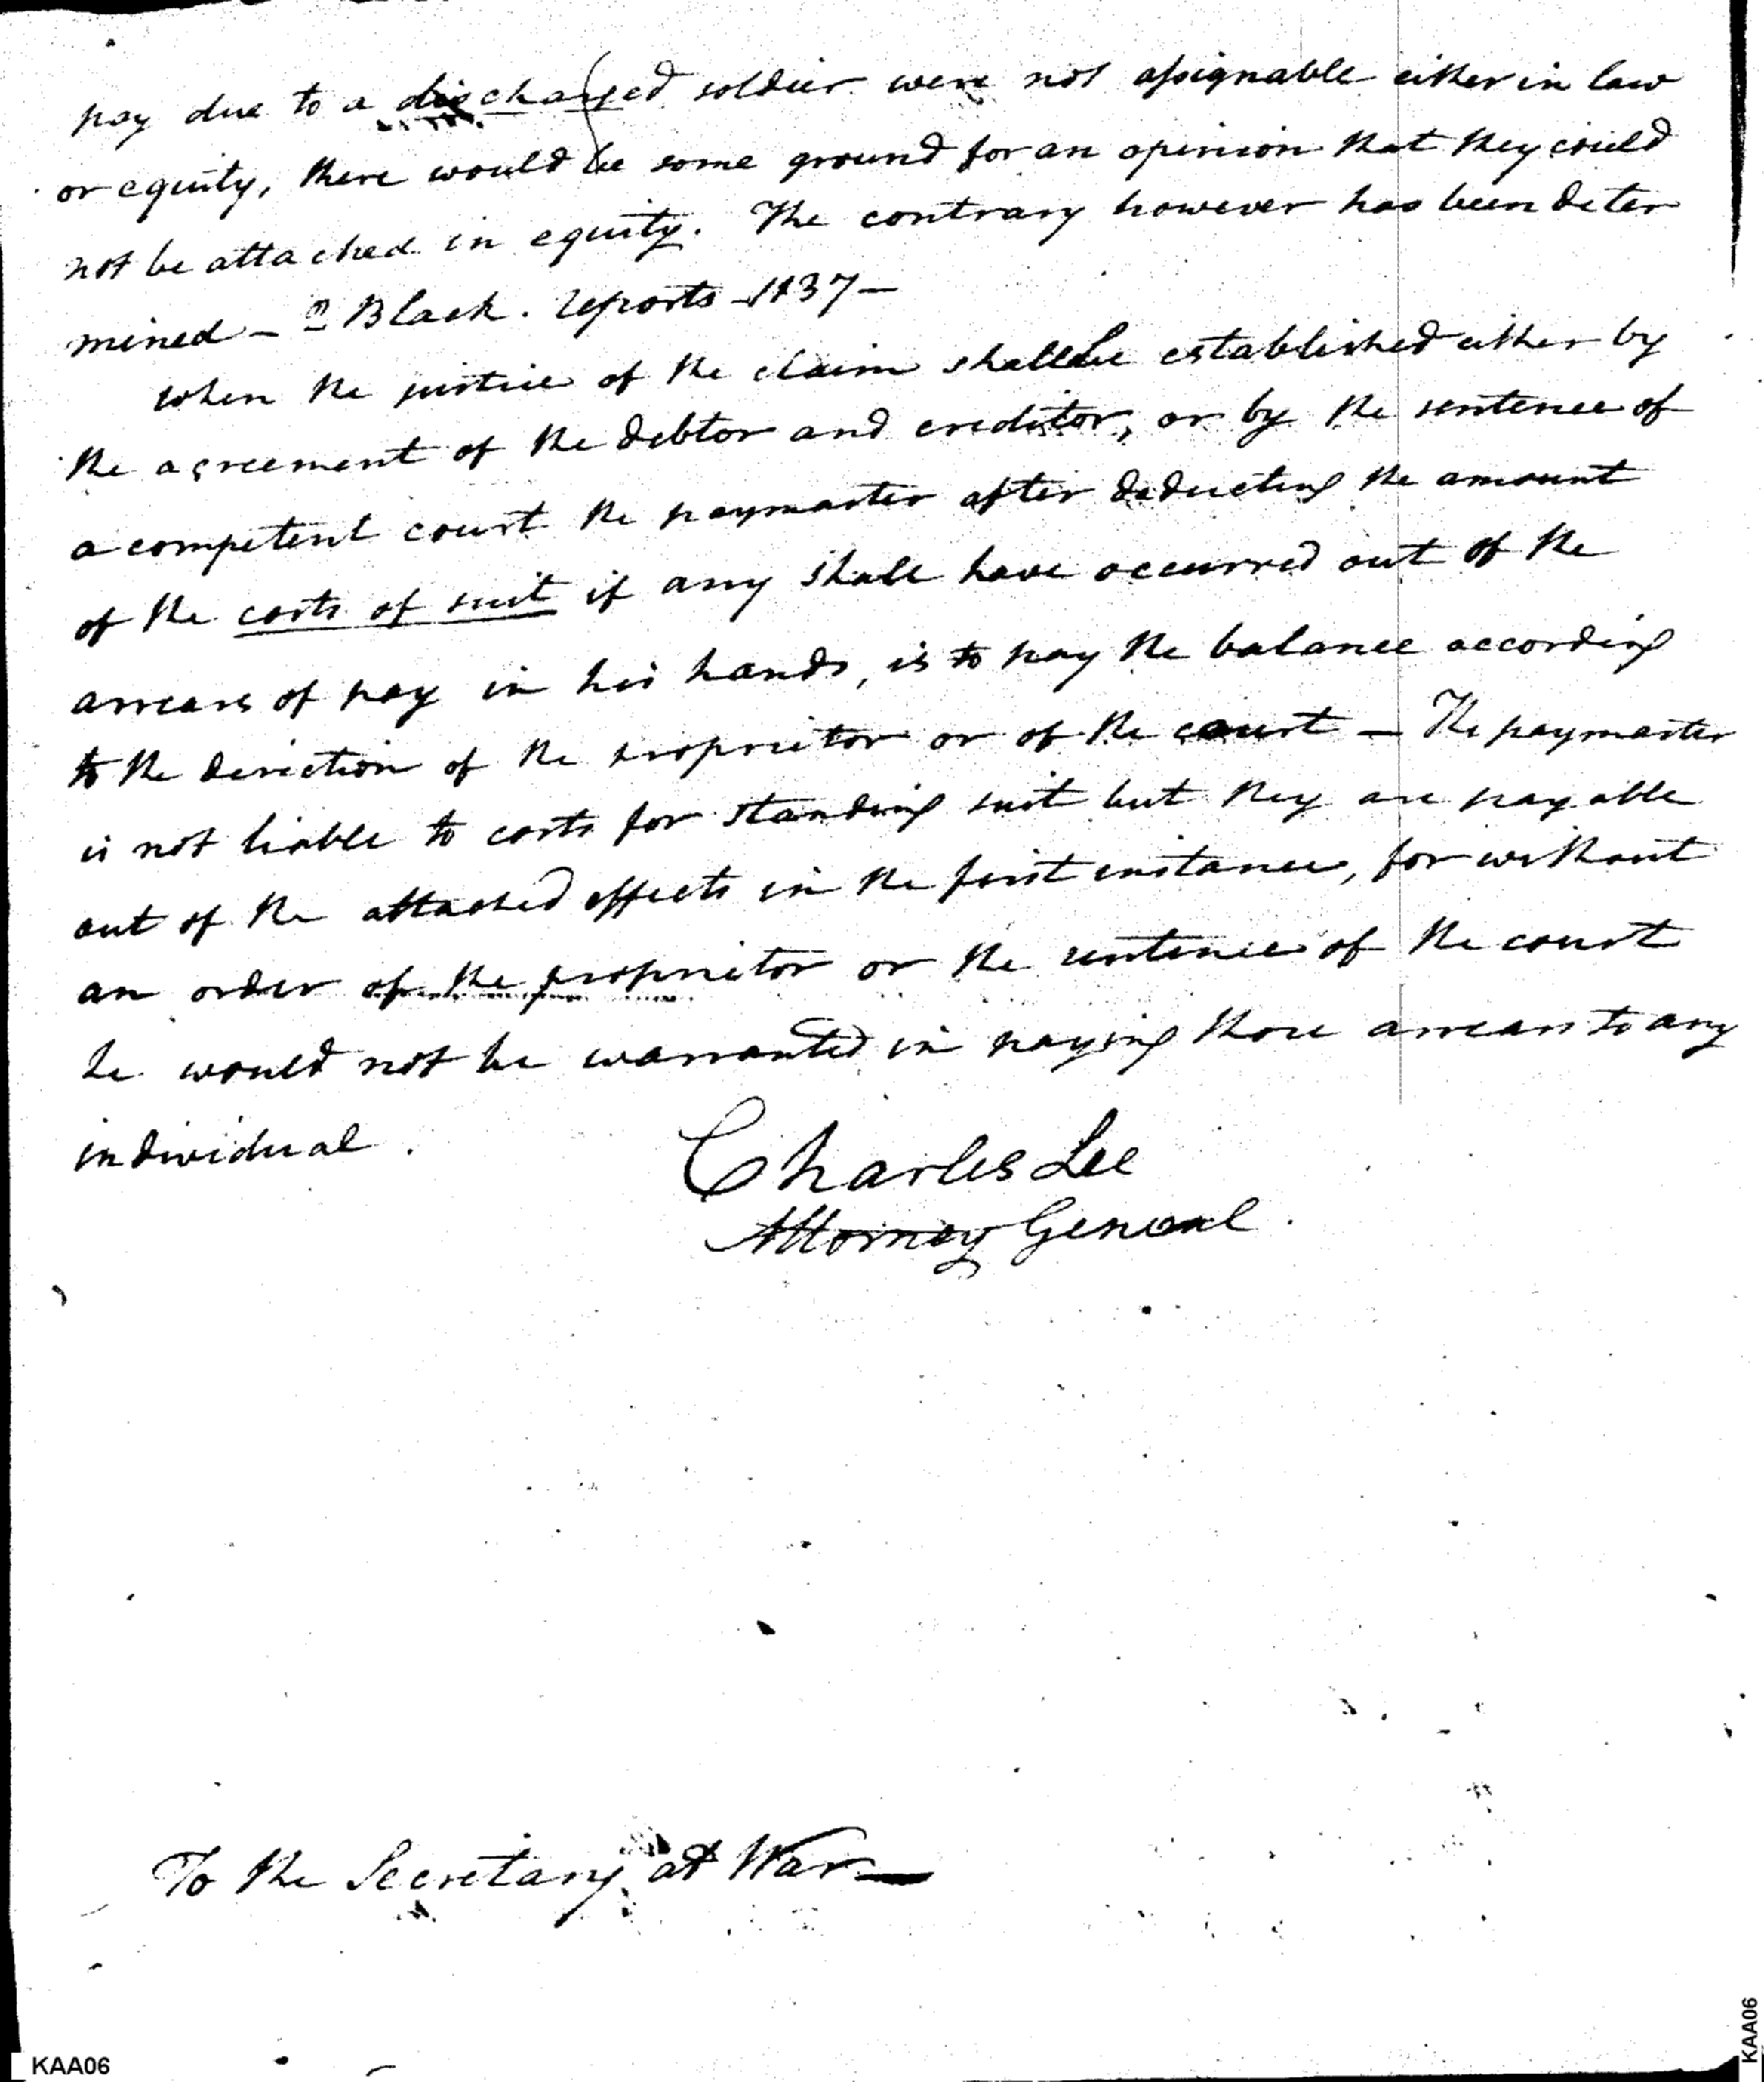 pay due to a discharged soldier were not assignable either in law
or equity, there would be some ground for an opinion that they could
not be attached in equity. The contrary however has been deter
mined – 2 Black. reports – 1137 –
when the justice of the claim shall be established either by
the agreement of the debtor and creditor, or by the sentence of
a competent court the paymaster after deducting the amount
of the costs of suit if any shall have occurred out of the
arrears of pay in his hands, is to pay the balance according
to the direction of the proprietor or of the court – The paymaster
is not liable to costs for standing suit but they are payable
out of the attached effects in the first instance, for without
an order of the proprietor or the sentence of the court
he would not be warranted in paying those arrears to any
individual.
Charles Lee
Attorney General.
To the Secretary at War –
KAA06
KAA06